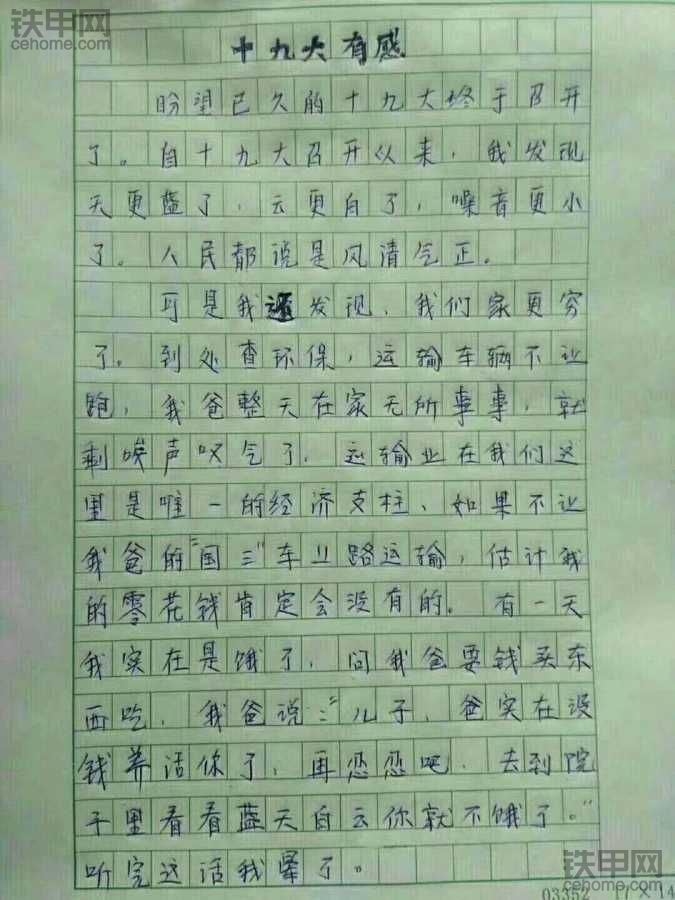 铁甲网
cehome.com
十九大有感
盼望已久的十九大终于召开
了。自十九大召开以来,我发现
天更蓝了,云更白了,噪音更小
了。人民都说是风清气正。
可是我还发现,我们家更穷
了。到处查环保,运输车辆不让
跑,我爸整天在家无所事事,就
剩唉声叹气了,运输业在我们这
里是唯一的经济支柱,如果不让
我爸的"国三"车上路运输,估计我
的零花钱肯定会没有的。有一天
我实在是饿了,问我爸要钱买东
西吃,我爸说:"儿子,爸实在没
钱养活你了,再忍忍吧,去到院
子里看看蓝天白云你就不饿了。"
听完这话我晕了。
铁甲网
cehome.com
03352 17×14